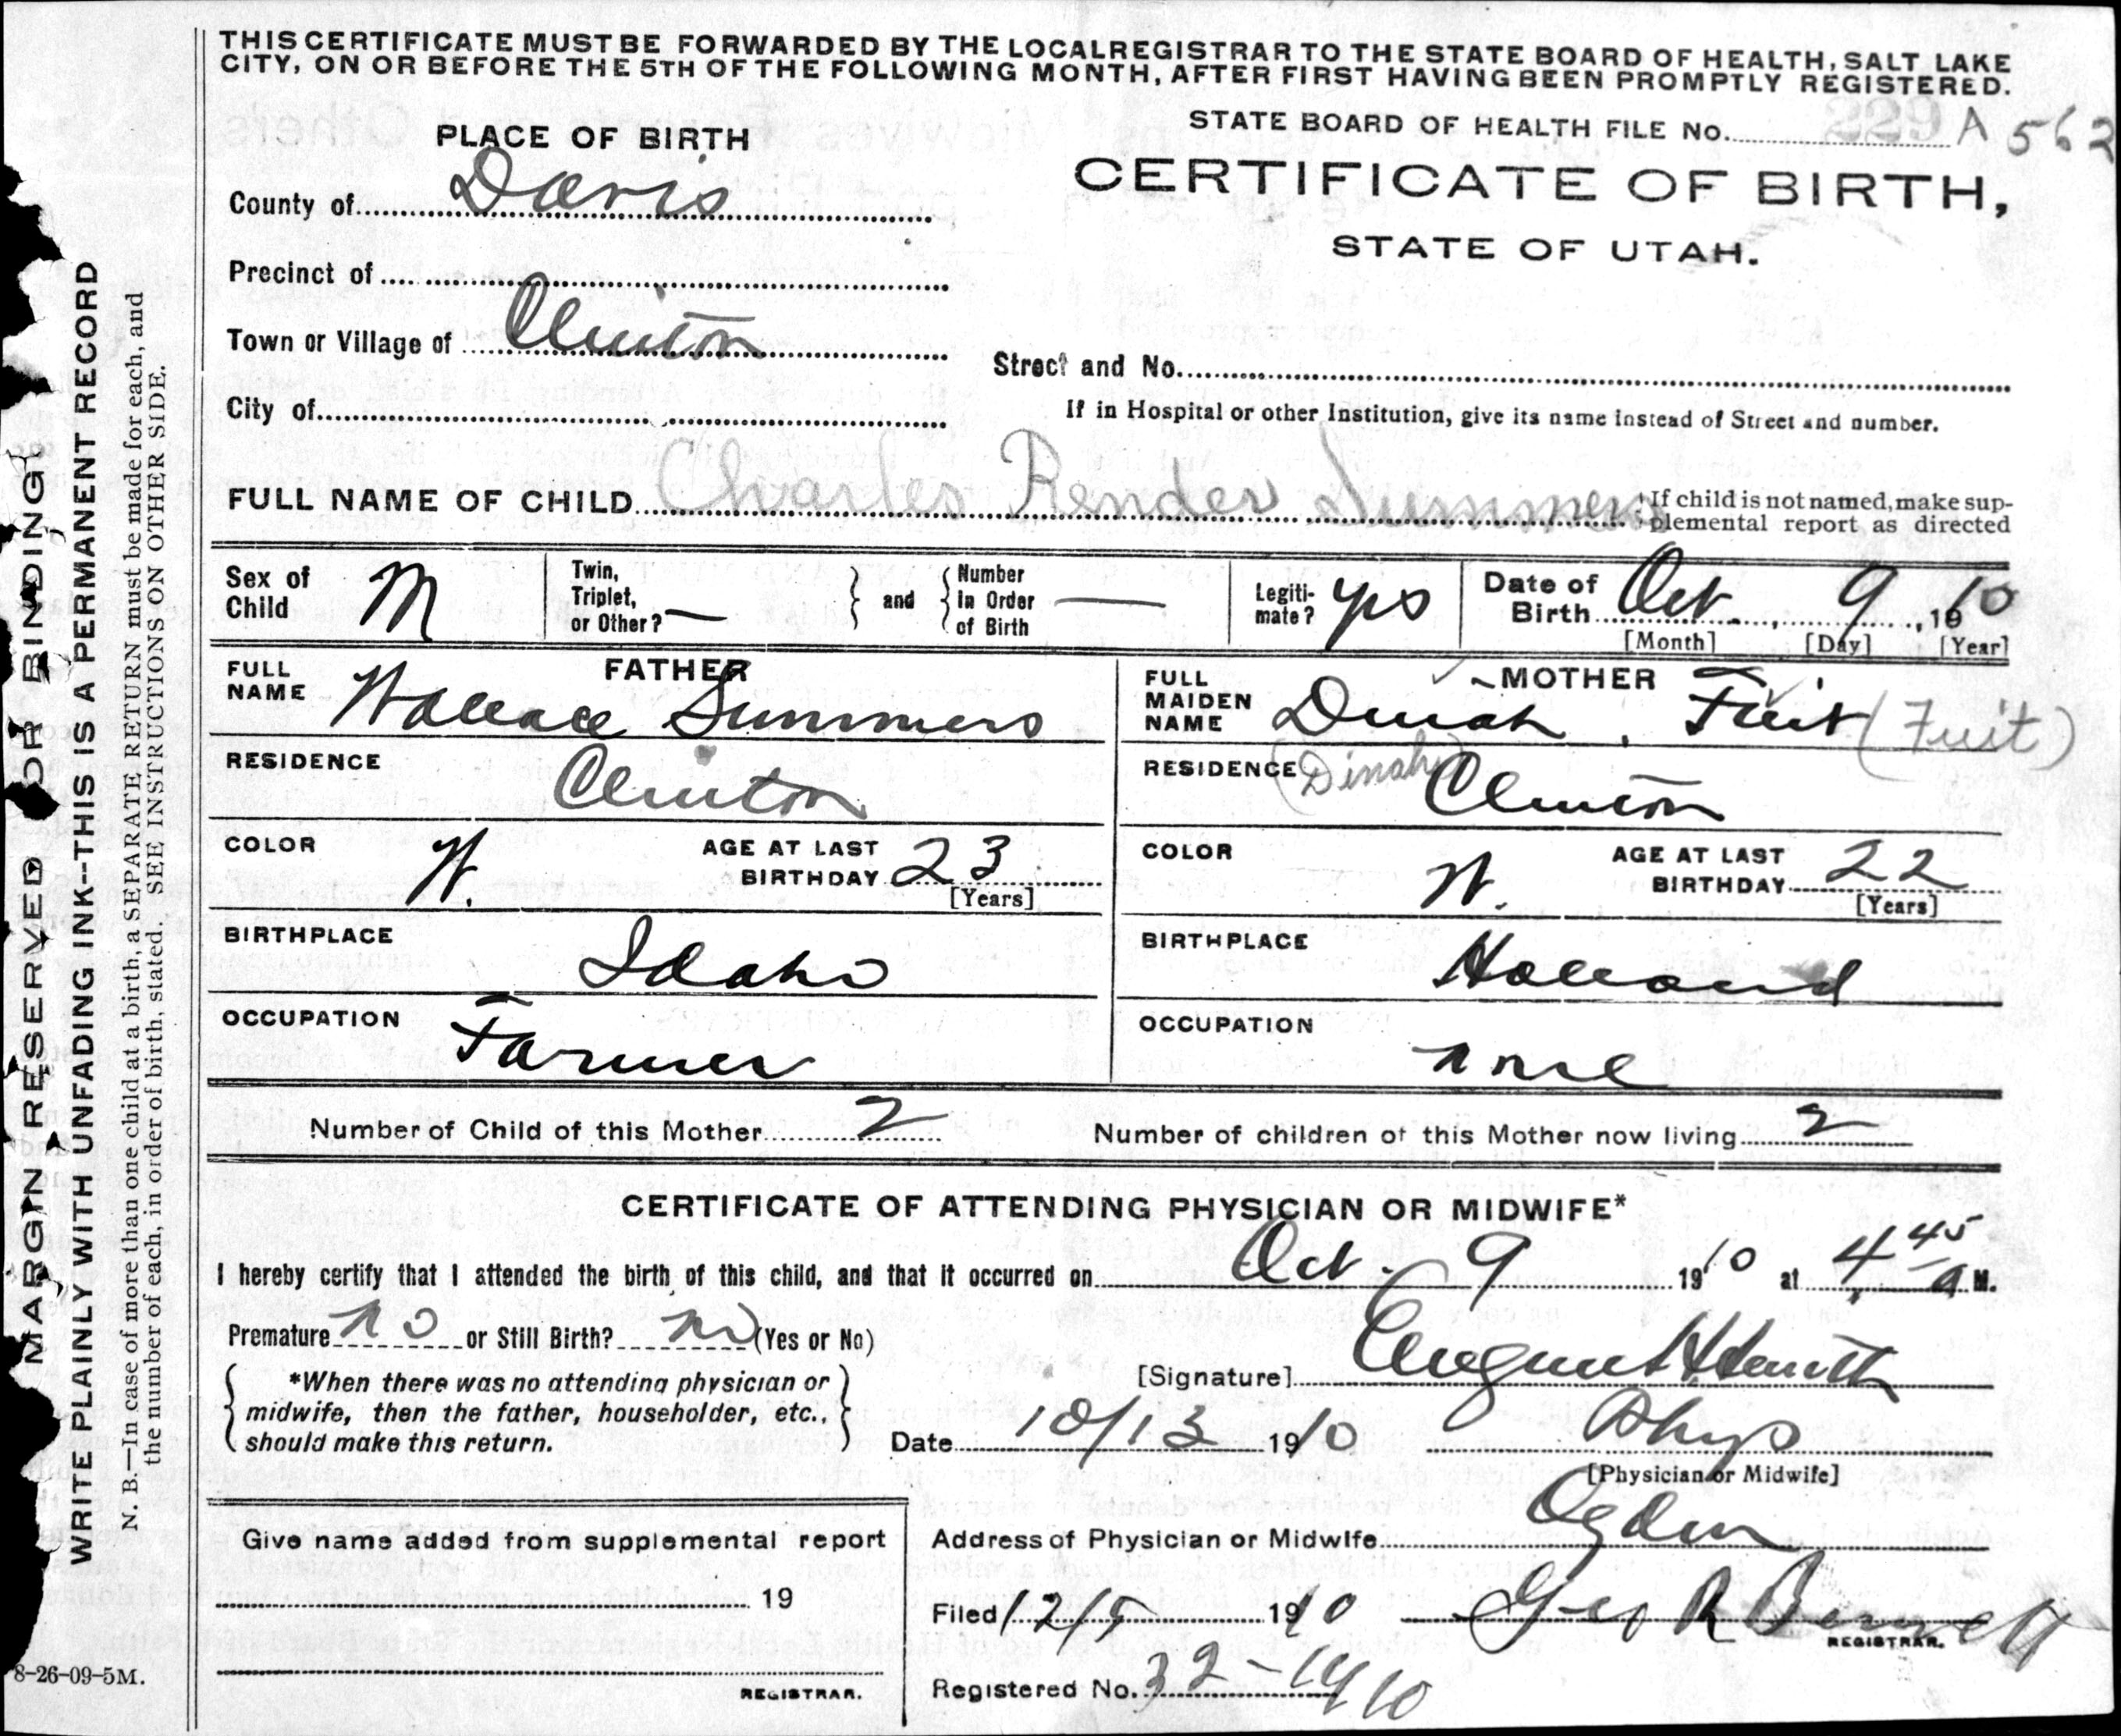 THIS CERTIFICATE MUST BE FORWARDED BY THE LOCAL REGISTRAR TO THE STATE BOARD OF HEALTH, SALT LAKE
CITY, ON OR BEFORE THE 5TH OF THE FOLLOWING MONTH, AFTER FIRST HAVING BEEN PROMPTLY REGISTERED.
STATE BOARD OF HEALTH FILE No. 229 A 562
PLACE OF BIRTH
CERTIFICATE OF BIRTH,
STATE OF UTAH.
County of Davis
Precinct of
Town or Village of Clinton
Street and No.
City of
If in Hospital or other Institution, give its name instead of Street and number.
FULL NAME OF CHILD Charles Render Summers
If child is not named, make sup-
plemental report as directed
Sex of Child M
Twin, Triplet, or Other? —
and
Number in Order of Birth —
Legiti-mate? yes
Date of Birth Oct. 9, 1910
[Month] [Day] [Year]
FATHER
FULL NAME Wallace Summers
MOTHER
FULL MAIDEN NAME Dinah Fuit (Fuit)
RESIDENCE Clinton
RESIDENCE (Dinah) Clinton
COLOR W.
AGE AT LAST BIRTHDAY 23
[Years]
COLOR W.
AGE AT LAST BIRTHDAY 22
[Years]
BIRTHPLACE Idaho
BIRTHPLACE Holland
OCCUPATION Farmer
OCCUPATION none
Number of Child of this Mother 2
Number of children of this Mother now living 2
CERTIFICATE OF ATTENDING PHYSICIAN OR MIDWIFE*
I hereby certify that I attended the birth of this child, and that it occurred on Oct. 9 1910 at 4 45 a M.
Premature no or Still Birth? no (Yes or No)
*When there was no attending physician or
midwife, then the father, householder, etc.,
should make this return.
[Signature]
Date 10/13 1910 Phys
[Physician or Midwife]
Give name added from supplemental report
19
REGISTRAR.
Address of Physician or Midwife Ogden
Filed 12/5 1910 Geo R Bennett
REGISTRAR.
Registered No. 32-1910
8-26-09-5M.
MARGIN RESERVED FOR BINDING
WRITE PLAINLY WITH UNFADING INK--THIS IS A PERMANENT RECORD
N. B.—In case of more than one child at a birth, a SEPARATE RETURN must be made for each, and
the number of each, in order of birth, stated. SEE INSTRUCTIONS ON OTHER SIDE.